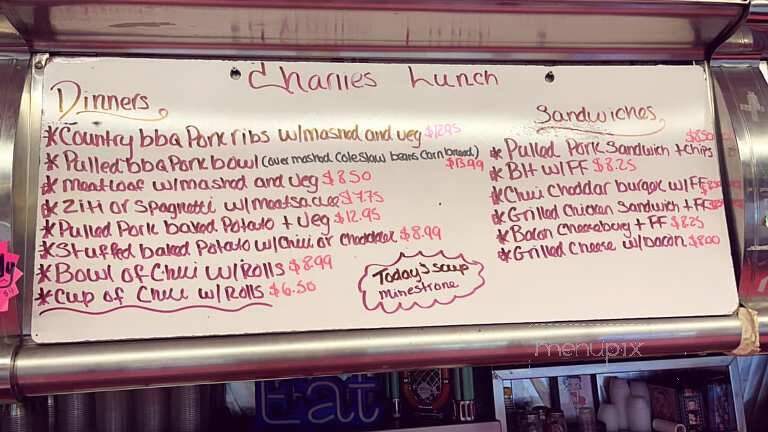 Charlies Lunch
Dinners
*Country bbq Pork ribs w/mashed and veg $12.95
*Pulled bbq Pork bowl (over mashed Coleslaw beans Corn bread) $13.99
*meatloaf w/mashed and veg $8.50
*Ziti or Spaghetti w/meatsauce $7.75
*Pulled Pork baked Potato + veg $12.95
*Stuffed baked Potato w/Chili or cheddar $8.99
*Bowl of Chili w/Rolls $8.99
*Cup of Chili w/Rolls $6.50
Today's soup
minestrone
Sandwiches
*Pulled Pork Sandwich + chips $8.50
*Blt w/FF $8.25
*Chili Cheddar burger w/FF
*Grilled Chicken Sandwich + FF
*Bacon Cheeseburg + FF $8.25
*Grilled Cheese w/bacon $8.00
menupix
Eat